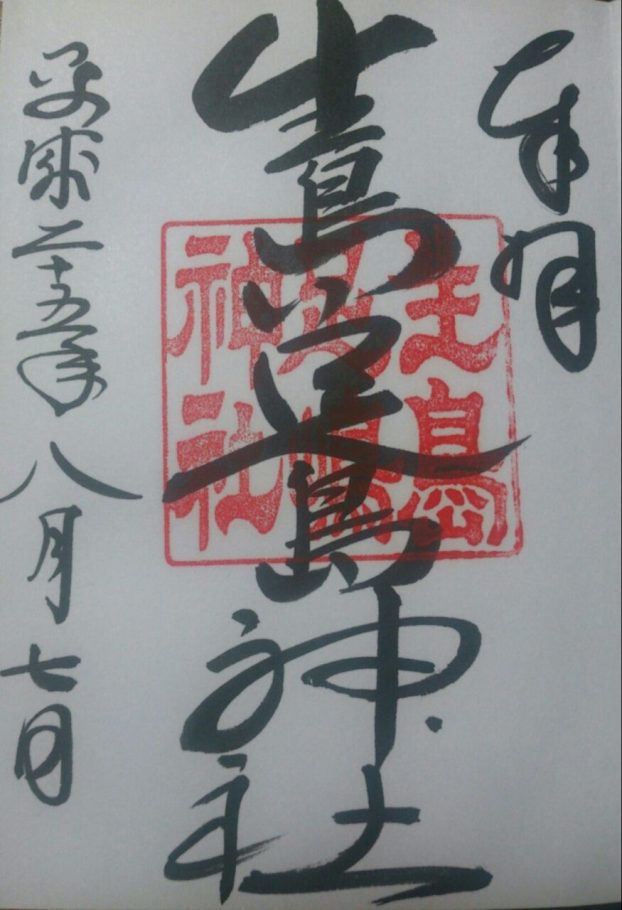 奉拝
生島足島神社
平成二十五年八月七日
生島
足嶋
神社